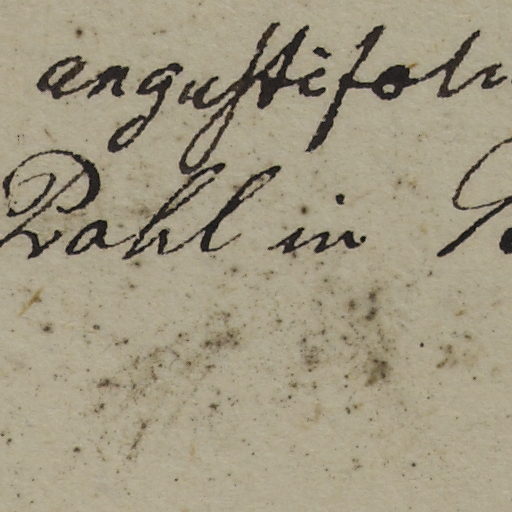 angustifoli
Vahl in